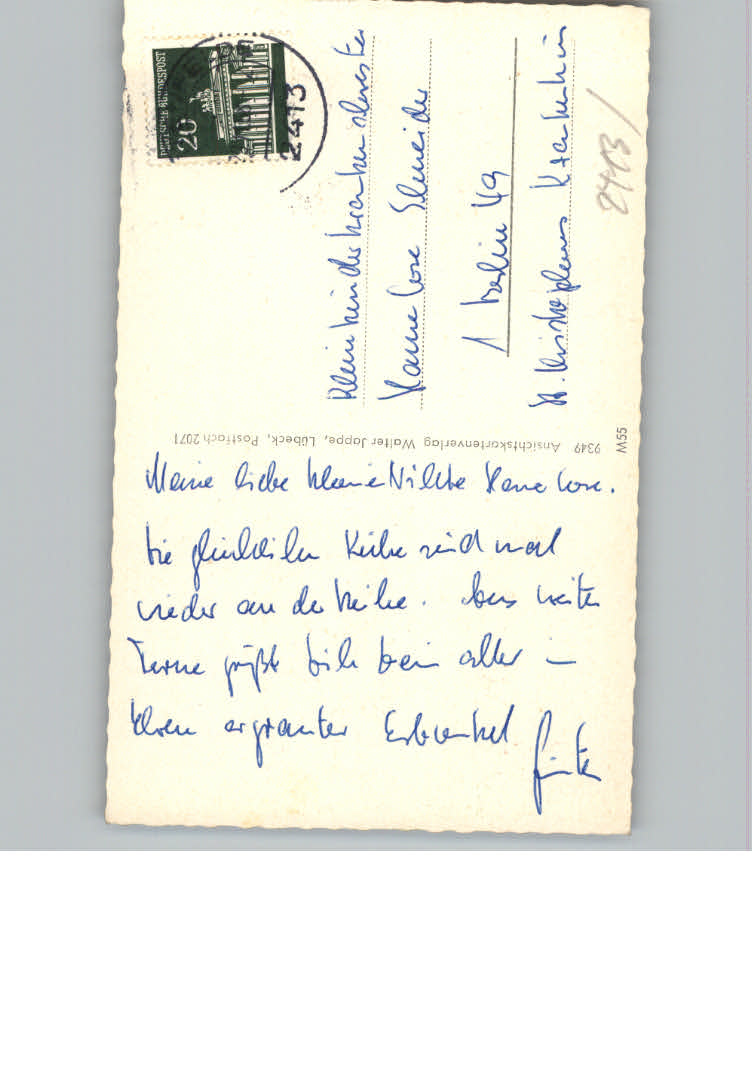 DEUTSCHE BUNDESPOST
20
2413
Kleinkinderkrankenschwester
Hanne Lore Schneider
1 Berlin 49
Krankenhaus
2413
9349 Ansichtskartenverlag Walter Jappe, Lübeck, Postfach 2071
M55
Meine liebe kleine Nichte Hanne Lore.
Die glücklichen Kühe sind mal
wieder an der Reihe. Aus weiter
Ferne grüßt Dich Dein alter in
Ehren ergrauter Erbonkel
Günter